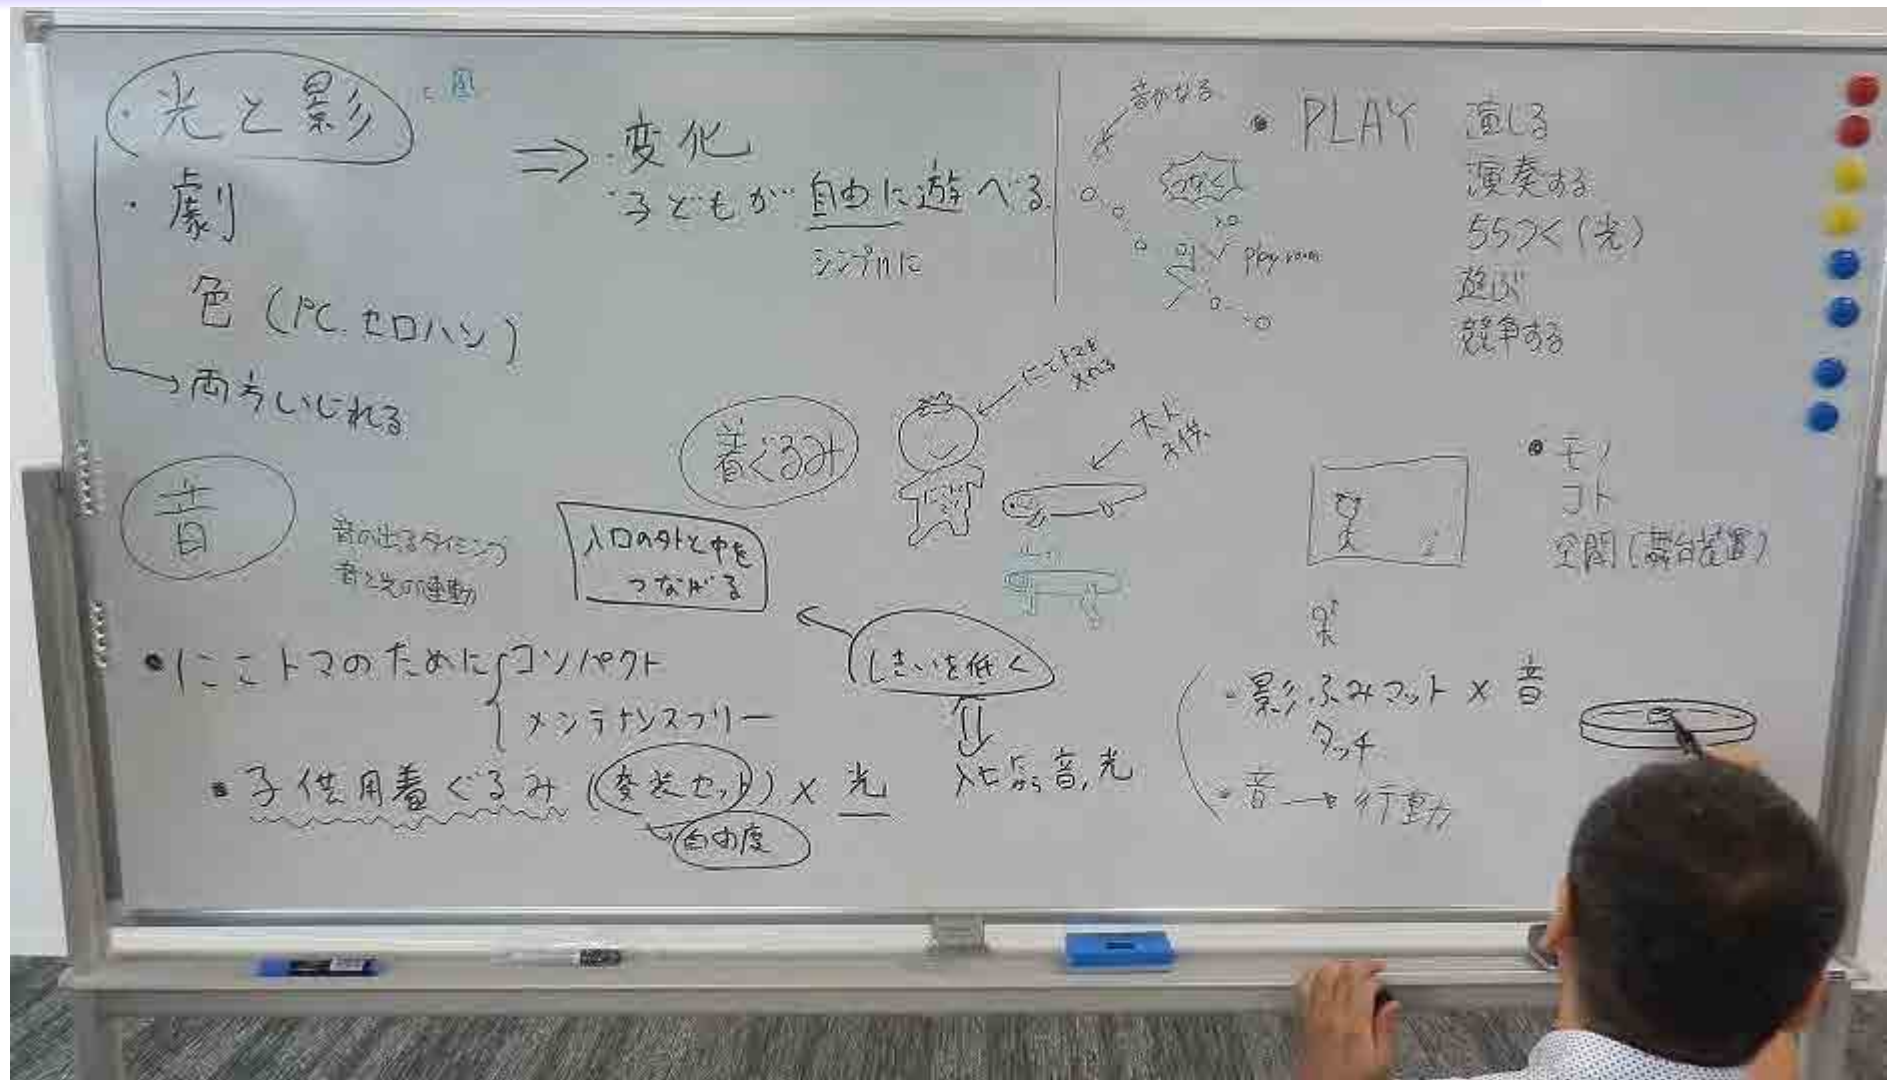 ・光と影
と風
・劇
色（PC.セロハン）
→両方いじれる
⇒・変化
・子どもが自由に遊べる
シンプルに
音がなる
つなぐ!
play room
・PLAY 演じる
演奏する
ちらつく（光）
遊ぶ
競争する
着ぐるみ
音
音の出るタイミング
音と光の連動
入口の外と中を
つなげる
しきいを低く
・モノ
コト
空間（舞台装置）
・にこトマのために コンパクト
メンテナンスフリー
・子供用着ぐるみ（変装セット）×光
自由度
音，光
・影ふみマット×音
タッチ
・音→行動